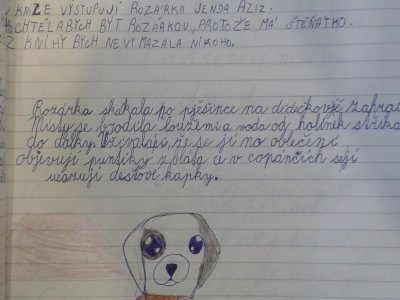 V KNIZE VYSTUPUJÍ ROZÁRKA JENDA AZIZ.
CHTĚLA BYCH BÝT ROZÁRKOU, PROTOŽE MÁ ŠTĚŇÁTKO.
Z KNIHY BYCH NEVYMAZALA NIKOHO.
Rozárka skákala po pješince na dědečkovje zahrad
Místy se brodila loužemi a voda od holínek stříka
do dálky. Užívala si, že se jí na oblečení
objevují puntíky z bláta a v copáncích sejí
usazují dešťové kapky.